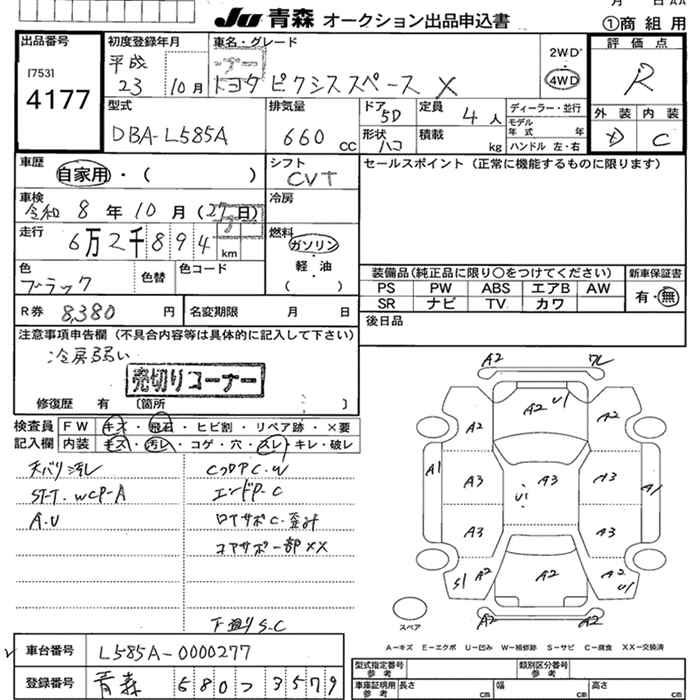 月 日 AA
JU 青森 オークション出品申込書
①商 組 用
出品番号
17531
4177
初度登録年月
平成
23 10月
車名・グレード
トヨタ ピクシススペース X
2WD
4WD
評 価 点
R
外 装 内 装
D C
型式
DBA-L585A
排気量
660 cc
ドア
5D
形状
ハコ
定員
4 人
積載 kg
ディーラー・並行
モデル
年 式 年
ハンドル 左・右
車歴
自家用・( )
シフト
CVT
セールスポイント(正常に機能するものに限ります)
車検
令和 8 年 10 月(27日)
冷房
走行
6万2千894 km
燃料
ガソリン
軽・油
( )
色
ブラック
色替
色コード
装備品(純正品に限り〇をつけてください)
新車保証書
PS PW ABS エアB AW
SR ナビ TV カワ
有・無
R券 8,380 円
名変期限 月 日
後日品
注意事項申告欄(不具合内容等は具体的に記入して下さい)
冷房弱い
売切りコーナー
修復歴 有 〔箇所 〕
検査員 FW キズ・飛石・ヒビ割・リペア跡・×要
記入欄 内装 キズ・汚レ・コゲ・穴・スレ・キレ・破レ
天バリ汚レ
ST-T. WCP-A
A.U
コアサポ一部XX
下廻りS.C
A2
A2 U1
A2 A2
A1 A3 A3 A3 A1
U1
A3 A3
S1 A2 A2 A2 U1
A2 A2
スペア
A−キズ E−エクボ U−凹み W−補修跡 S−サビ C−腐食 XX−交換済
車台番号 L585A-0000277
登録番号 青森 580 つ 3579
型式指定番号
類別区分番号
車庫証明用
参 考
長さ cm 幅 cm 高さ cm